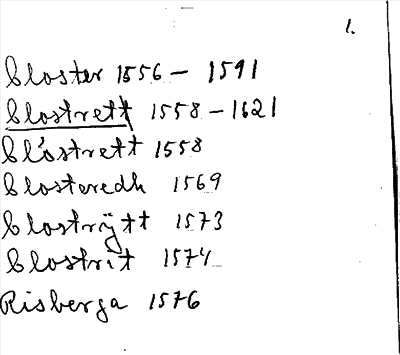 1.
Closter 1556 - 1591
Clostrett 1558 - 1621
Clöstrett 1558
Closteredh 1569
Clostrÿtt 1573
Clostrit 1574
Risberga 1576